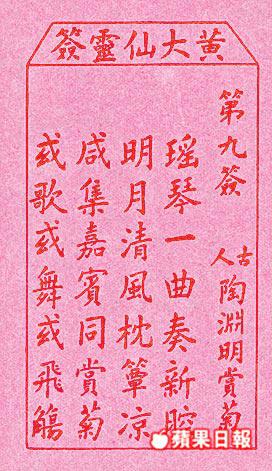 黄大仙靈簽
第九簽
古人陶淵明賞菊
瑶琴一曲奏新腔
明月清風枕簟凉
咸集嘉賓同賞菊
或歌或舞或飛觴
蘋果日報